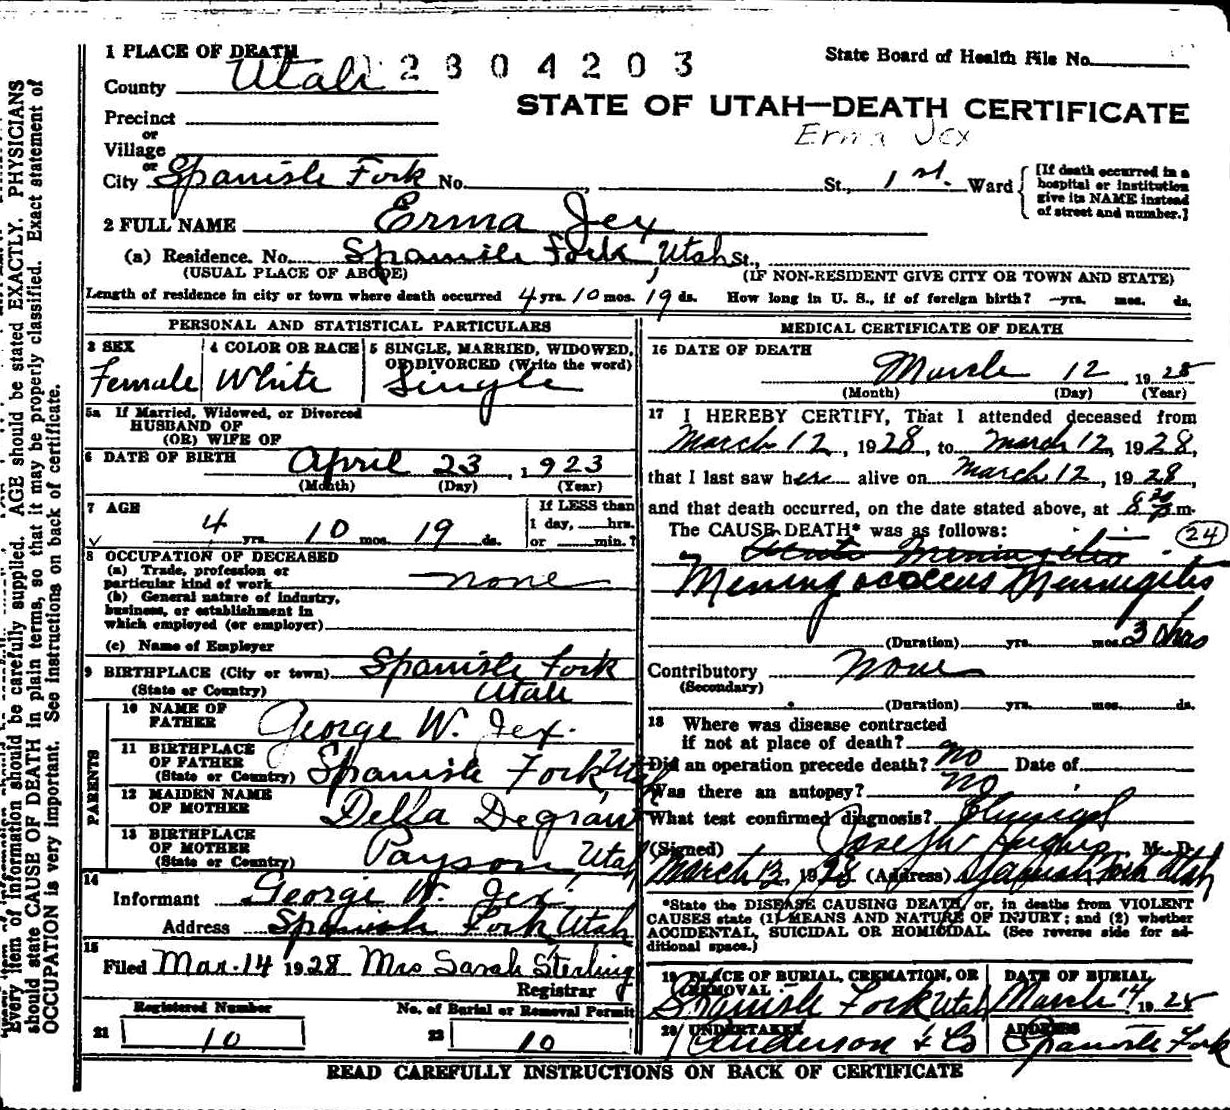 1 PLACE OF DEATH
State Board of Health File No.
County Utah 2804203
STATE OF UTAH—DEATH CERTIFICATE
Precinct
or
Erma Jex
Village
or
City Spanish Fork No. , St., 1st. Ward
[If death occurred in a hospital or institution give its NAME instead of street and number.]
2 FULL NAME Erma Jex
(a) Residence. No. Spanish Fork, Utah St.,
(USUAL PLACE OF ABODE) (IF NON-RESIDENT GIVE CITY OR TOWN AND STATE)
Length of residence in city or town where death occurred 4 yrs. 10 mos. 19 ds. How long in U. S., if of foreign birth? — yrs. mos. ds.
PERSONAL AND STATISTICAL PARTICULARS
3 SEX 4 COLOR OR RACE 5 SINGLE, MARRIED, WIDOWED,
OR DIVORCED (Write the word)
Female White Single
5a If Married, Widowed, or Divorced
HUSBAND OF
(OR) WIFE OF
6 DATE OF BIRTH April 23, 1923
(Month) (Day) (Year)
7 AGE
4 yrs. 10 mos. 19 ds.
If LESS than
1 day, hrs.
or min.?
8 OCCUPATION OF DECEASED
(a) Trade, profession or
particular kind of work none
(b) General nature of industry,
business, or establishment in
which employed (or employer)
(c) Name of Employer
9 BIRTHPLACE (City or town) Spanish Fork
(State or Country) Utah
PARENTS
10 NAME OF
FATHER George W. Jex.
11 BIRTHPLACE
OF FATHER
(State or Country) Spanish Fork Utah
12 MAIDEN NAME
OF MOTHER Della Degraw
13 BIRTHPLACE
OF MOTHER
(State or Country) Payson, Utah
14
Informant George W. Jex
Address Spanish Fork Utah
15
Filed Mar. 14 1928 Mrs Sarah Sterling
Registrar
Registered Number No. of Burial or Removal Permit
21 10 22 10
MEDICAL CERTIFICATE OF DEATH
16 DATE OF DEATH
March 12 1928
(Month) (Day) (Year)
17 I HEREBY CERTIFY, That I attended deceased from
March 12, 1928, to March 12, 1928,
that I last saw her alive on March 12, 1928,
and that death occurred, on the date stated above, at m.
The CAUSE DEATH* was as follows: 24
Acute Meningitis
Meningococcus Meningitis
(Duration) yrs. mos.
Contributory None
(Secondary)
(Duration) yrs. mos. ds.
18 Where was disease contracted
if not at place of death?
Did an operation precede death? no Date of
Was there an autopsy? no
What test confirmed diagnosis? Clinical
(Signed) Joseph Hughes, M. D.
March 13, 1928 (Address) Spanish Fork Utah
*State the DISEASE CAUSING DEATH, or, in deaths from VIOLENT
CAUSES state (1) MEANS AND NATURE OF INJURY; and (2) whether
ACCIDENTAL, SUICIDAL OR HOMICIDAL. (See reverse side for ad-
ditional space.)
19 PLACE OF BURIAL, CREMATION, OR
REMOVAL DATE OF BURIAL
Spanish Fork Utah March 14 1928
20 UNDERTAKER ADDRESS
Anderson & Co Spanish Fork
READ CAREFULLY INSTRUCTIONS ON BACK OF CERTIFICATE
Every item of information should be carefully supplied. AGE should be stated EXACTLY. PHYSICIANS
should state CAUSE OF DEATH in plain terms, so that it may be properly classified. Exact statement of
OCCUPATION is very important. See instructions on back of certificate.